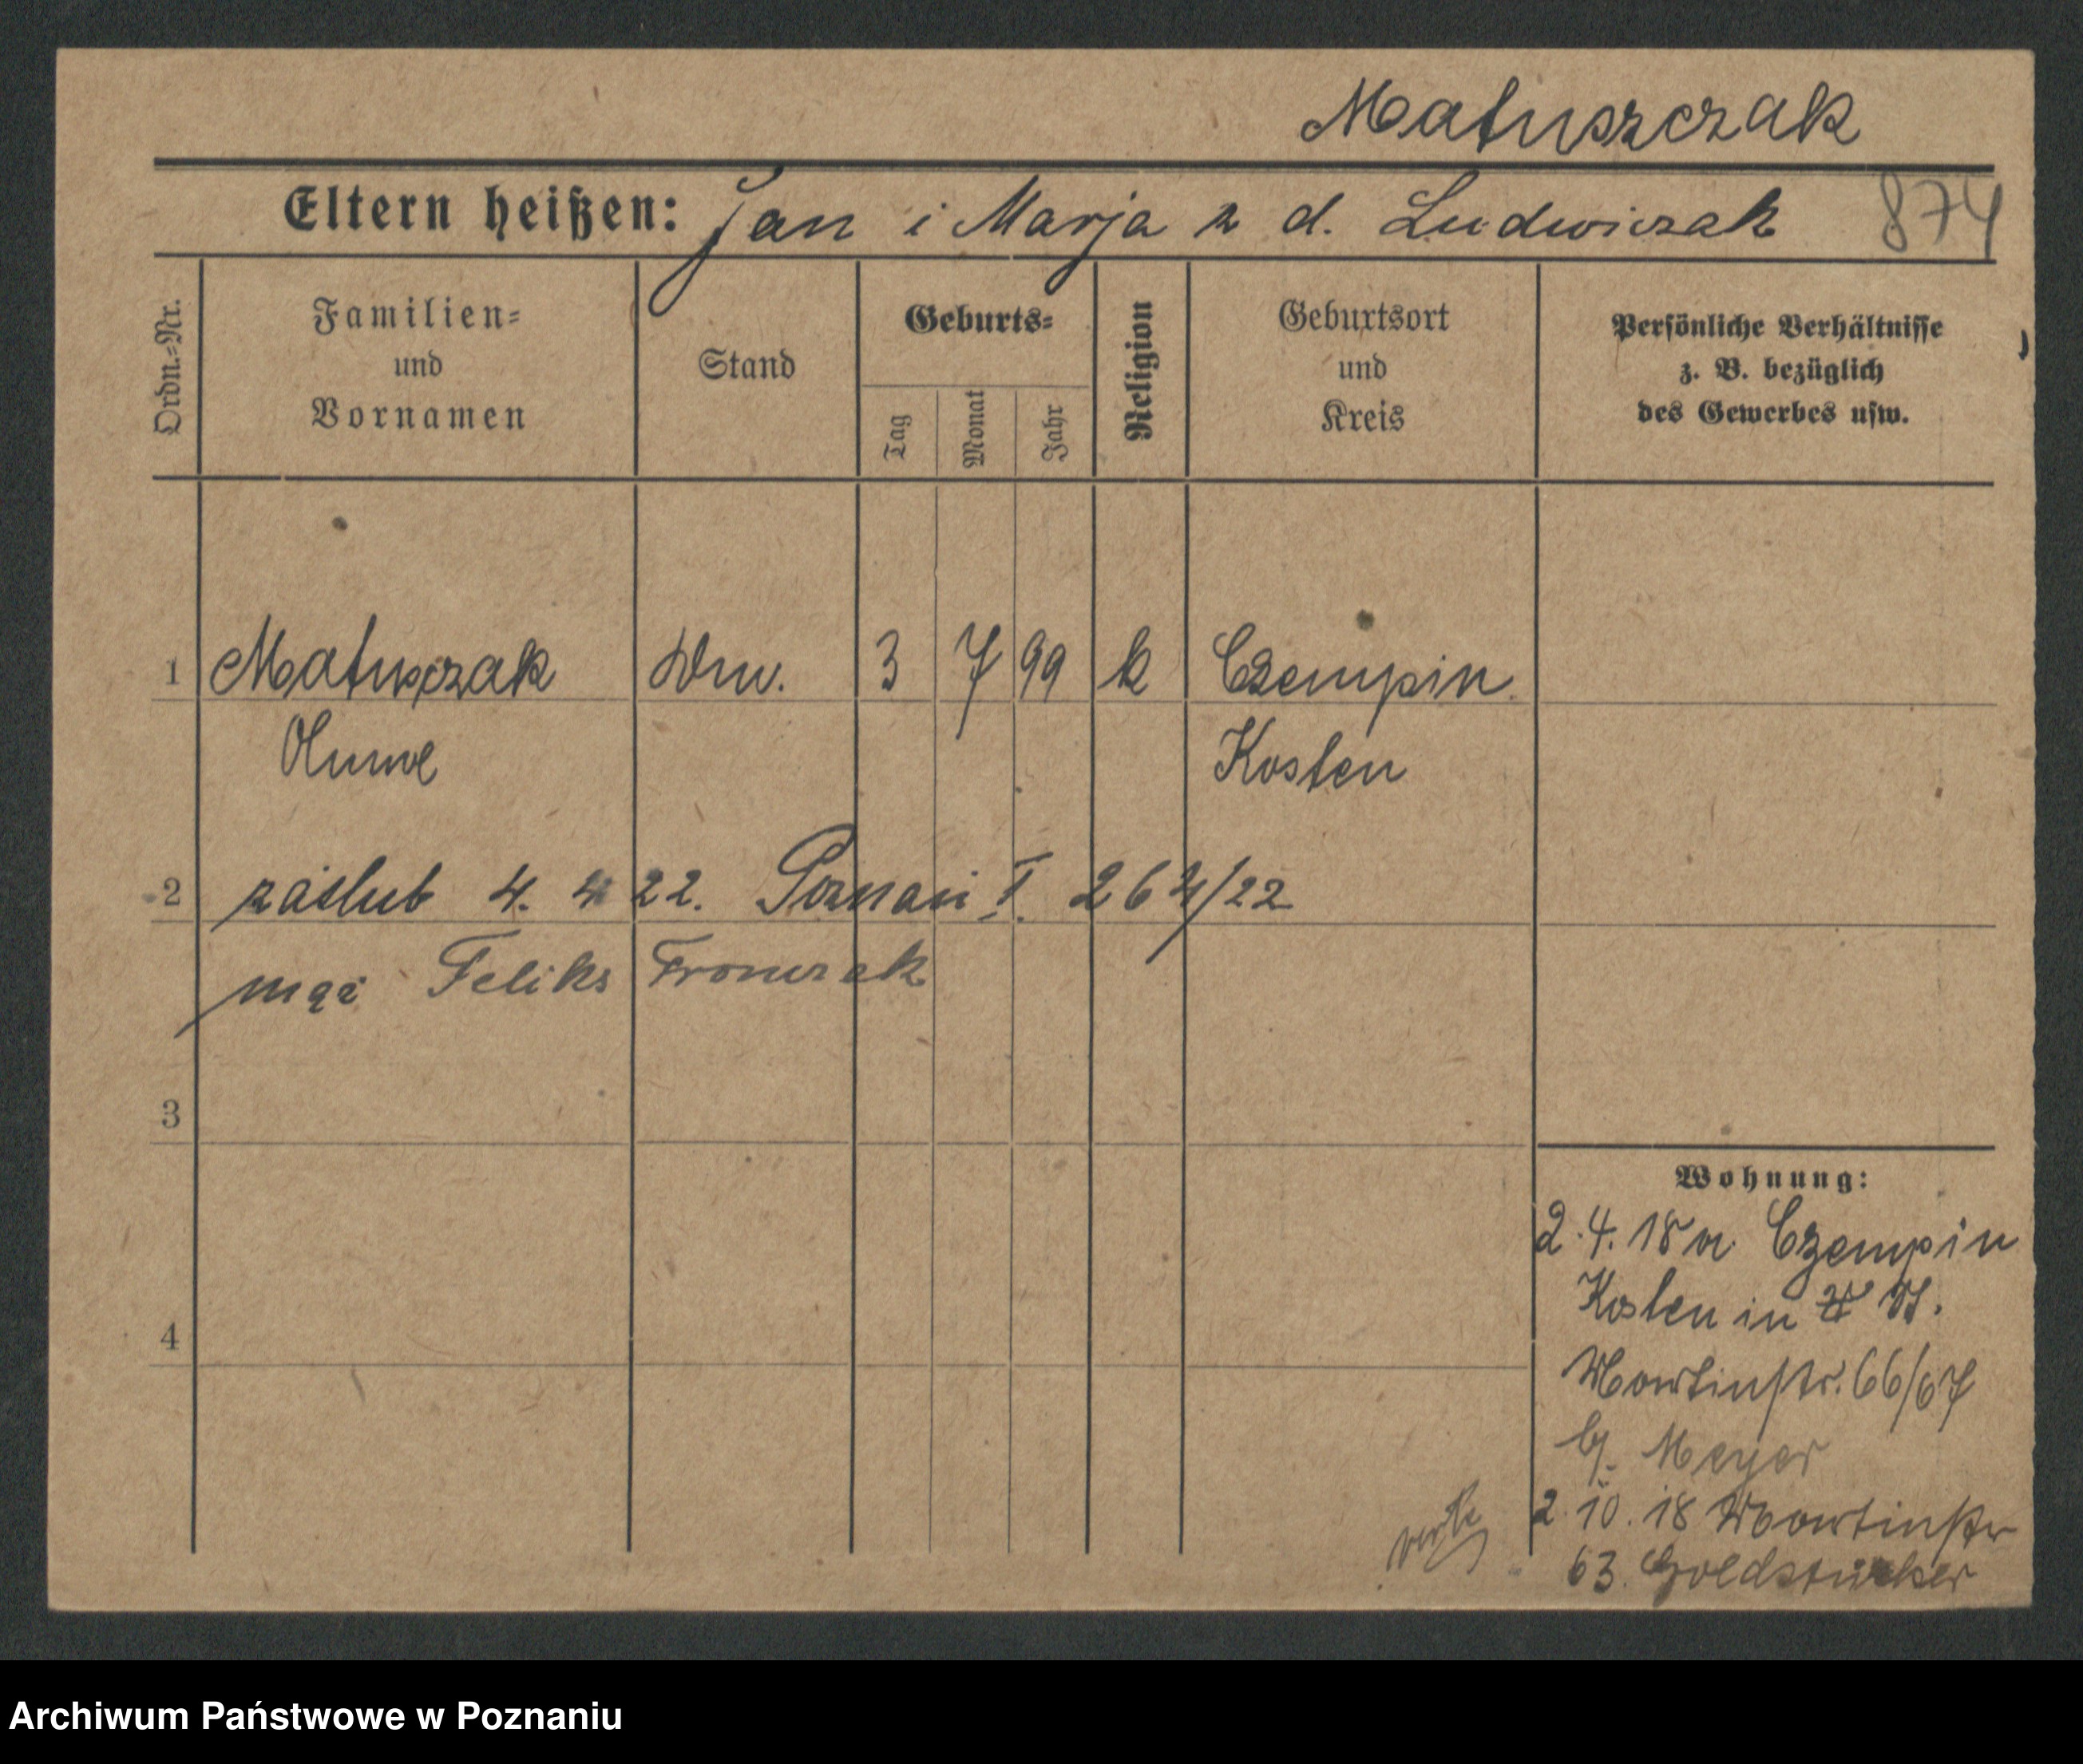 Matuszczak
Eltern heißen: Jan i Marja z d. Ludwiczak 874
Ordn.-Nr.
Familien- und Vornamen
Stand
Geburts-
Tag
Monat
Jahr
Religion
Geburtsort und Kreis
Persönliche Verhältnisse
z. B. bezüglich
des Gewerbes usw.
1 Matuszczak 3 7 99 k Czempin
Kosten
2 zaślub 4. 4 22. Poznań I. 264/22
mąż Feliks Fronczak
3
4
Wohnung:
2.4.18 v. Czempin
Kosten in
Martinstr. 66/67
b. Meyer
2.10.18 Martinstr
63. Goldstücker
verte
Archiwum Państwowe w Poznaniu